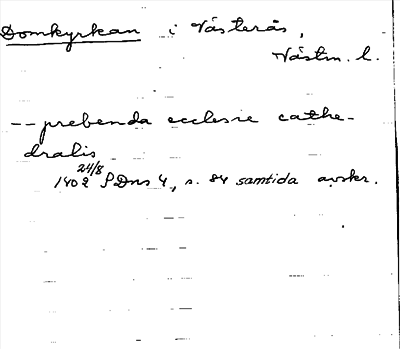 Domkyrkan i Västerås,
Västm. l.
-- prebenda ecclesie cathe-
dralis
24/8
1402 SDns 4, s. 84 samtida avskr.